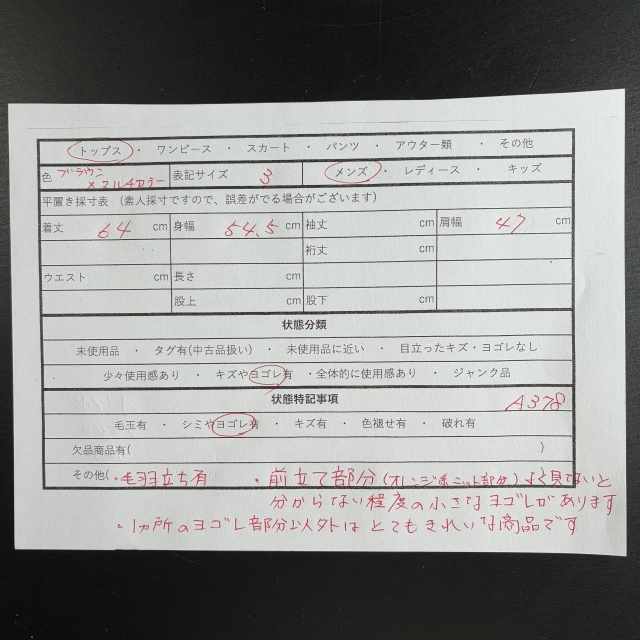 トップス ・ ワンピース ・ スカート ・ パンツ ・ アウター類 ・ その他
色 ブラウン×マルチカラー 表記サイズ 3 メンズ ・ レディース ・ キッズ
平置き採寸表 （素人採寸ですので、誤差がでる場合がございます）
着丈 64 cm 身幅 54.5 cm 袖丈 cm 肩幅 47 cm
裄丈 cm
ウエスト cm 長さ cm
股上 cm 股下 cm
状態分類
未使用品 ・ タグ有(中古品扱い) ・ 未使用品に近い ・ 目立ったキズ・ヨゴレなし
少々使用感あり ・ キズやヨゴレ有 ・全体的に使用感あり ・ ジャンク品
状態特記事項 A378
毛玉有 ・ シミやヨゴレ有 ・ キズ有 ・ 色褪せ有 ・ 破れ有
欠品商品有( )
その他( ・毛羽立ち有 ・前立て部分（オレンジ系ニット部分）よく見ないと
分からない程度の小さなヨゴレがあります
・1ヵ所のヨゴレ部分以外はとてもきれいな商品です